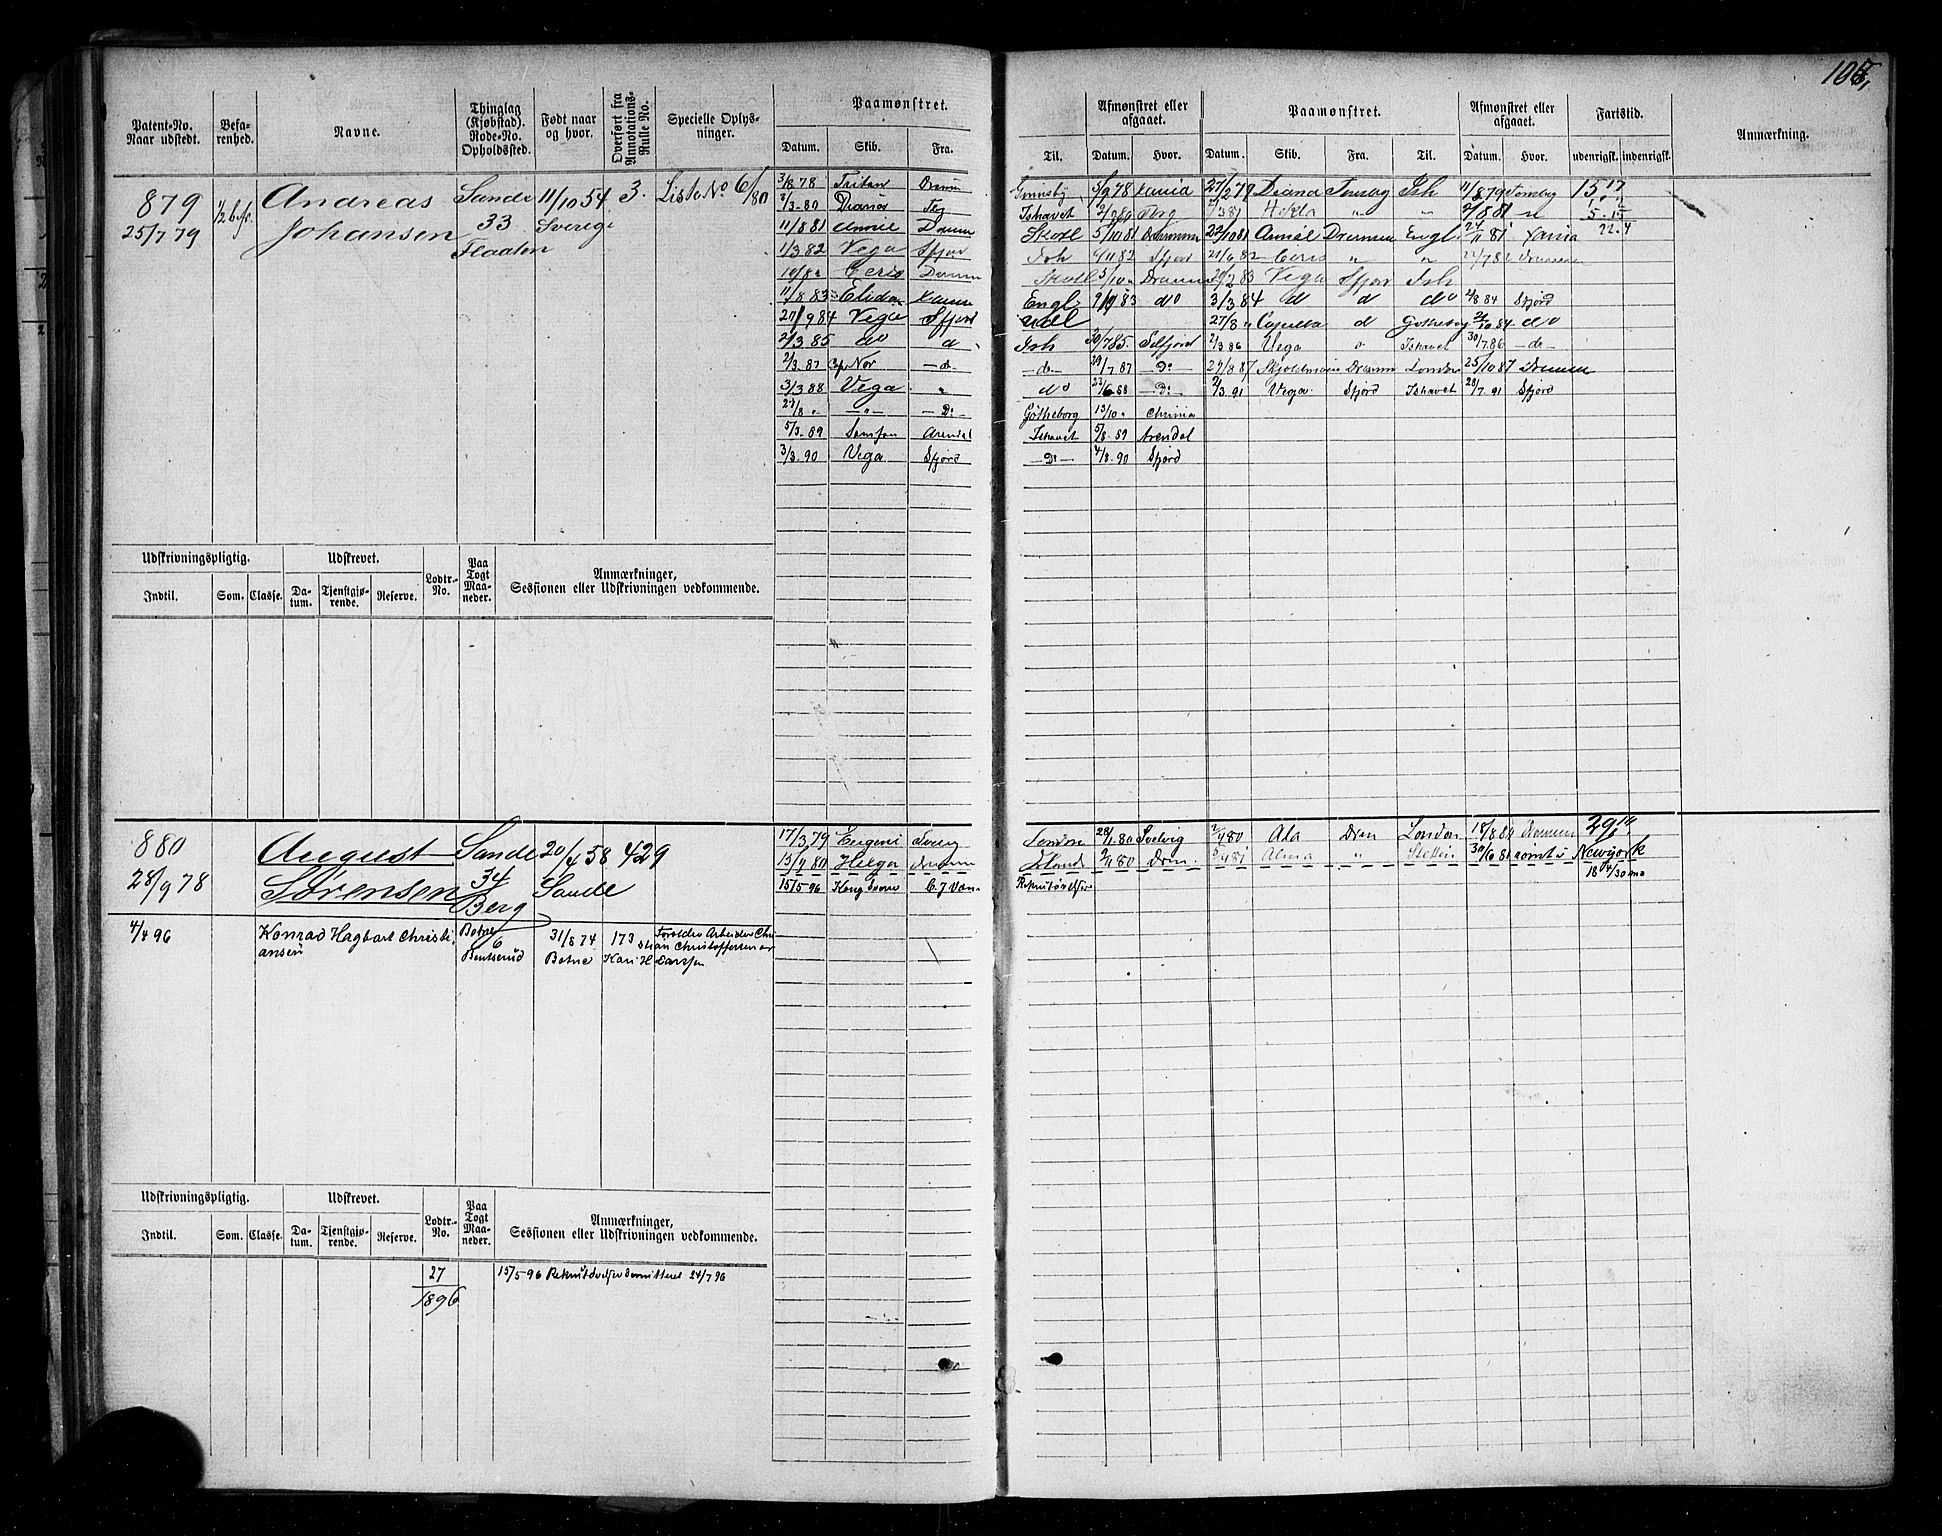 108,
Patent-No. Naar udstedt.
Befarenhed.
Navne.
Thinglag (Kjøbstad). Rode-No. Opholdssted.
Født naar og hvor.
Overført fra Annotations-Rulle No.
Specielle Oplysninger.
Paamønstret.
Datum. Skib. Fra.
Til.
Afmønstret eller afgaaet.
Datum. Hvor.
Paamønstret.
Datum. Skib. Fra. Til.
Afmønstret eller afgaaet.
Datum. Hvor.
Fartstid.
udenrigsk. indenrigsk.
Anmærkning.
879 Andreas Sande 11/10 54 3. Liste No 6/80
25/7 79 Johansen 33 Sverige
Flaaten
3/8 78 Tritan Grimsby 5/9 78 Xania 27/2 79 Diana Tønsbg Ish 11/8 79 Tønsbg 15 17
2/3-80 Diana Tbg Ishavet Tbg 81 Hekla " " 2/8 81
11/8 81 Dramm Skotl 5/10 81 Dramm 22/10 81 Drammen Engl. 24/11 81 Xania 22.4
1/3 82 Vega Sfjor Ish Sfjor 21/6 82 Ceres " "
Ceres Dramm Skotl Dramm 2 83 Vega Sfjor Ish
11/8 83 Elida Xania Engl 9/9 83 do 3/3 84 d d do 2/8 84 Sfjord
20/9 84 Vega Sfjord Udl 27/8 " d Gotheborg 84 do
2/3 85 do d Ish 30/7 85. Sfjord 2/3 86 Vega " Ishavet 30/7.86 -do-
2/3.87 Nor -do- -do- 29/7.87 -Do- 29/8 87 Dramm London 25/10 87 Drammen
3/3 88 Vega " do 23/6 88 -Do- 2/3.91 Vega Sfjord Ishavet 28/7.91 Sfjord
27/8 " -"- -Do- Götheborg 13/10 " Chrinia
5/3.89 Samson Arendal Ishavet 5/8.89 Arendal
3/3.90 Vega Sfjord -Do- 4/8.90 Sfjord
Udskrivningspligtig. Udskrevet. Lodtr.-No. Paa Togt Maaneder. Anmærkninger, Sessionen eller Udskrivningen vedkommende.
Indtil. Som. Classe. Datum. Tjenstgjørende. Reserve.
880 August Sande 20/4 58 429
28/9 78 Sørensen 34 Sande
Berg
17/3 79 Eugeni Tbg London 28/1.80 Svelvig 2/4 80 Ala Dram London 18/8 80 Dramm 29 14
13/9 80 Helga Dramm Dram. 81 Alma " Stettin 30/6 81 rømt i Newyork
15/5-96 Kong Sverre Rekrutøvelse
4/4 96 Konrad Hagbart Christiansen Botne 6 Bentserud 31/8 74 Botne 173 Forældre Arbeider Christian Christoffersen og Kari H Larsen
Udskrivningspligtig. Udskrevet. Lodtr.-No. Paa Togt Maaneder. Anmærkninger, Sessionen eller Udskrivningen vedkommende.
Indtil. Som. Classe. Datum. Tjenstgjørende. Reserve.
27 15/5-96 Rekrutøvelse dimitteret 24/7 96
1896